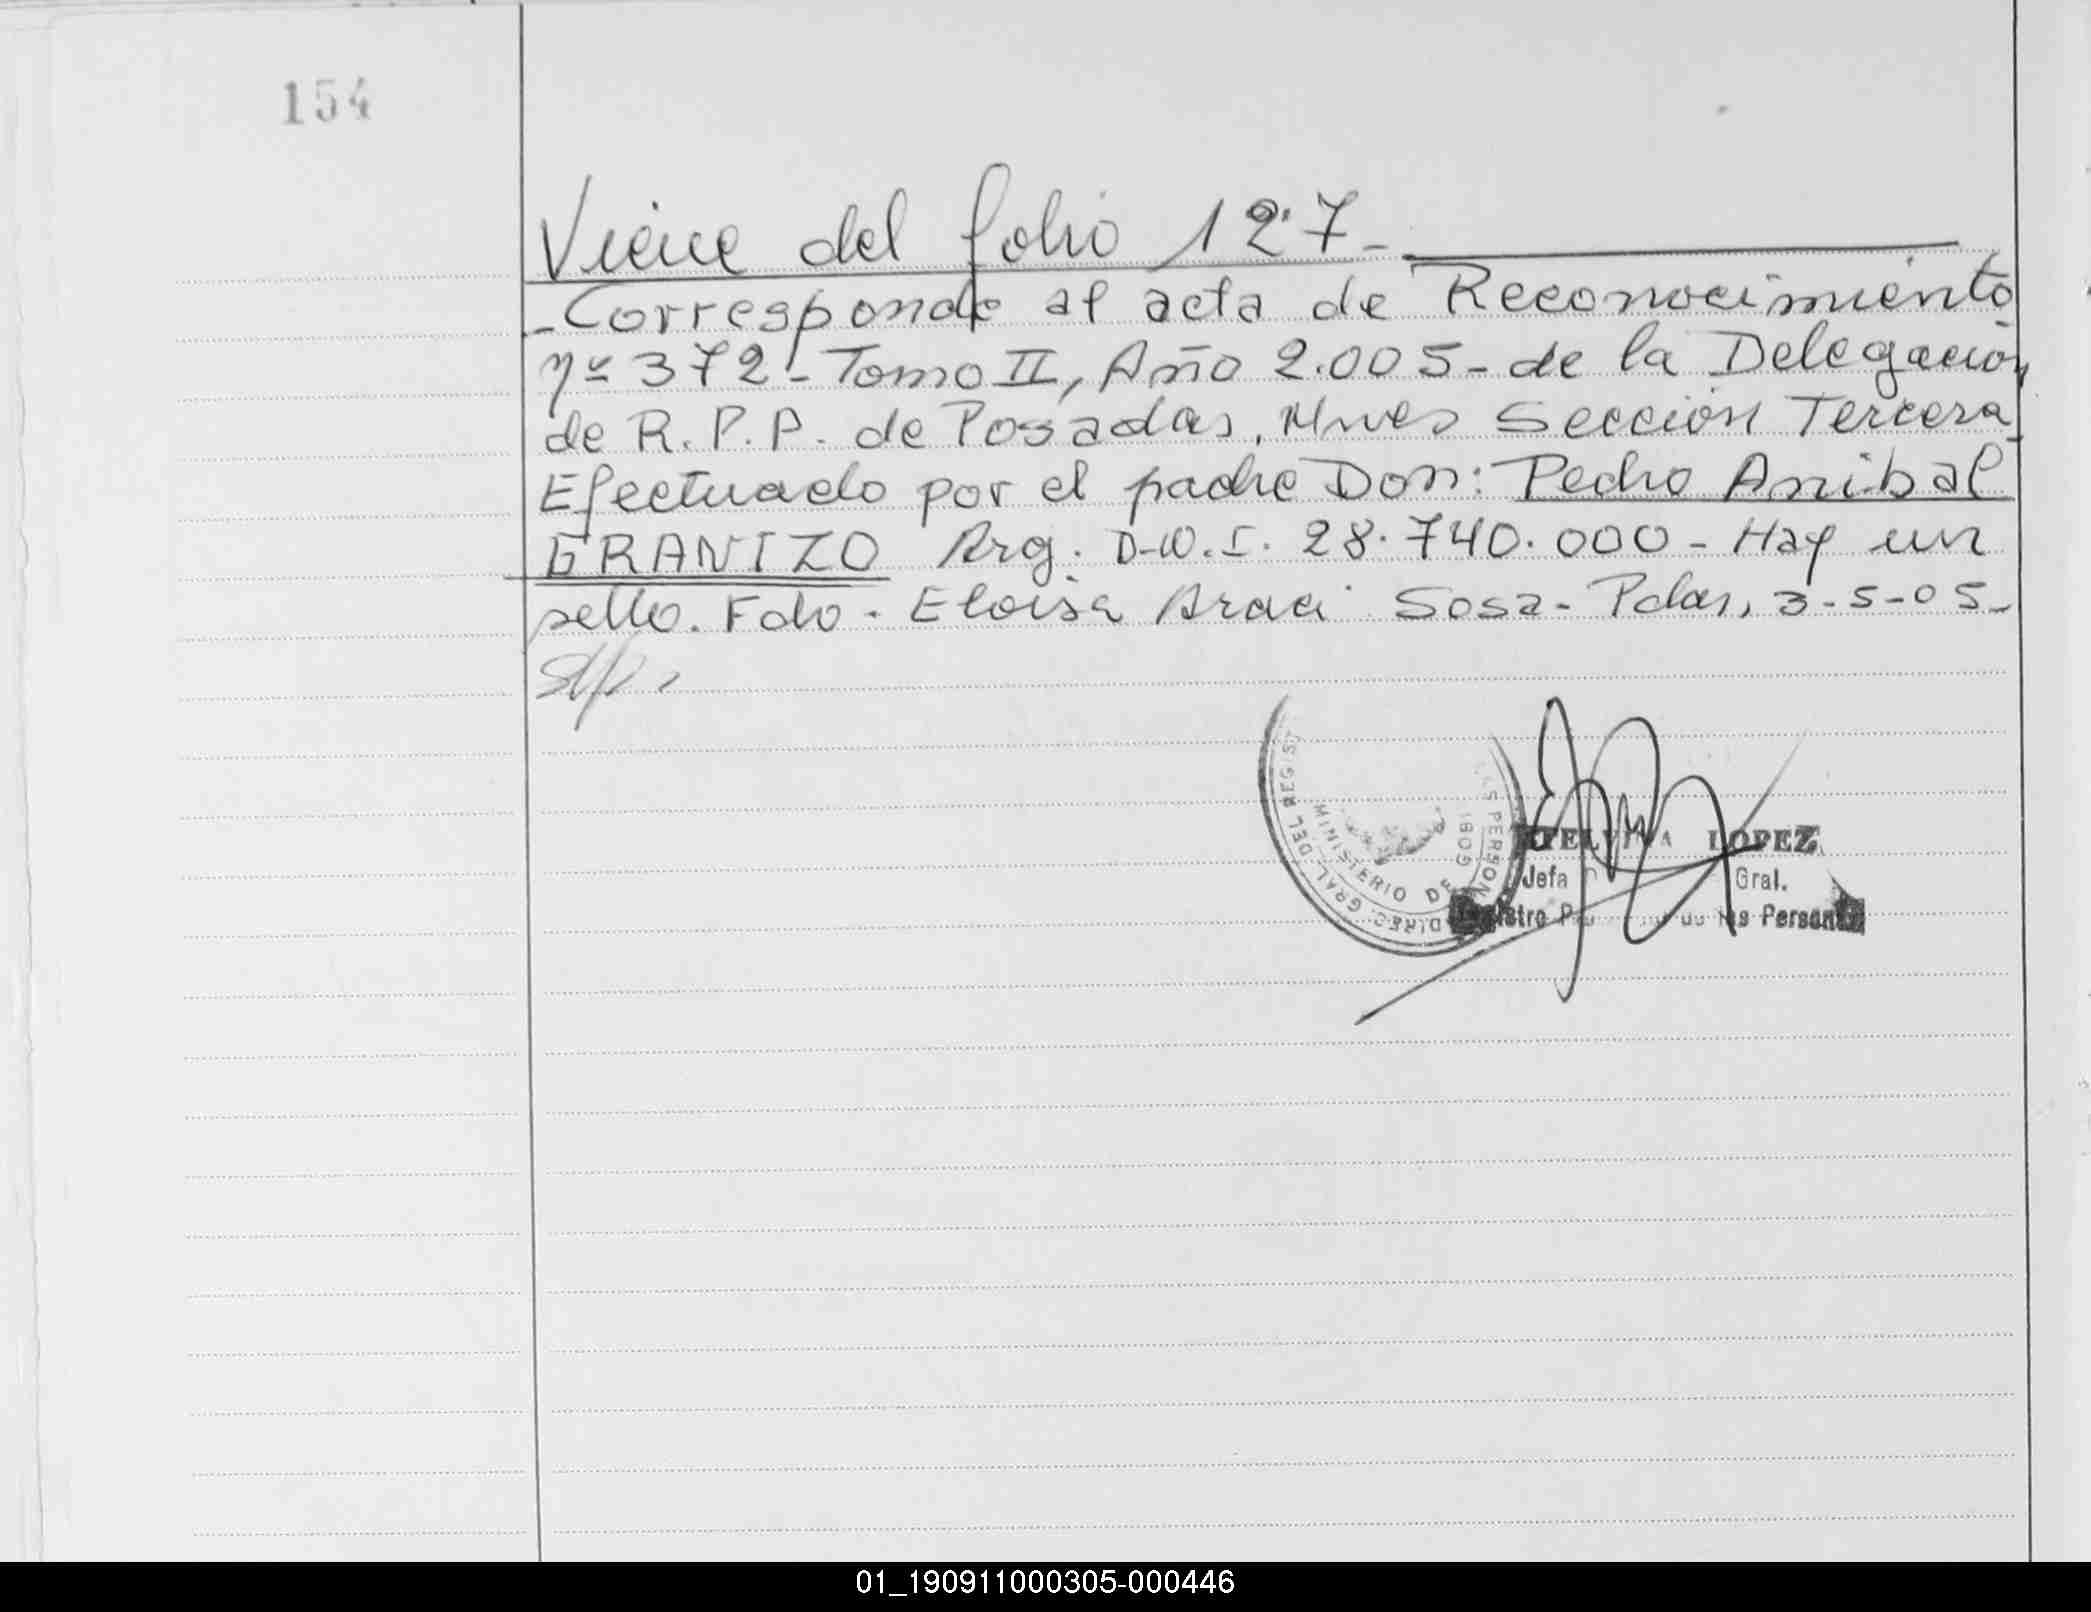 154
Viene del folio 127-
-Corresponde al acta de Reconocimiento
nº 372- Tomo II, Año 2.005- de la Delegación
de R.P.P. de Posadas, Mnes Sección Tercera-
Efectuado por el padre Don: Pedro Anibal
GRANIZO Arg. D.N.I. 28.740.000- Hay un
sello. Fdo. Eloisa Araci Sosa- Pdas, 3-5-05-
DIREC. GRAL. DEL REGIST
MINISTERIO DE GOBI
LOPEZ
Jefa Gral.
Registro de las Personas
01_190911000305-000446